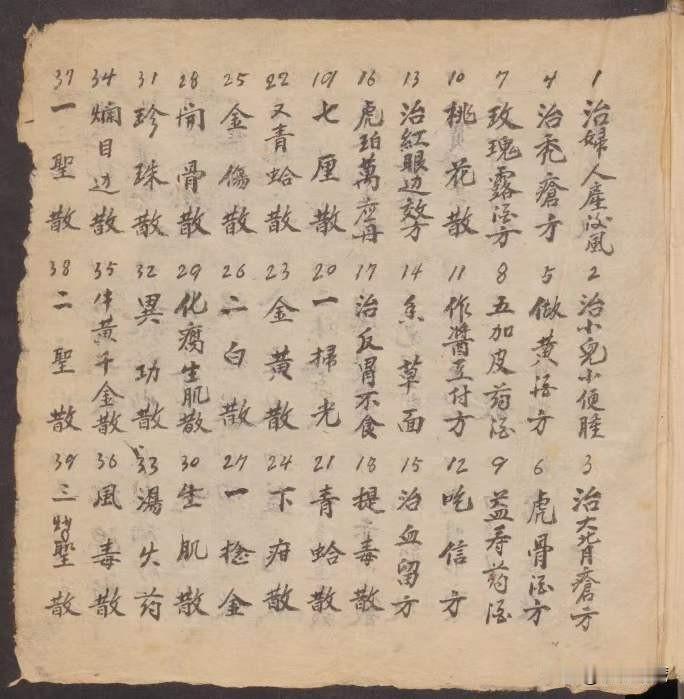 1 治婦人產後風
2 治小兒小便腫
3 治大背瘡方
4 治秃瘡方
5 做黄酒方
6 虎骨酒方
7 玫瑰露酒方
8 五加皮药酒
9 益寿药酒
10 桃花散
11 作醬豆付方
12 吃信方
13 治紅眼边效方
14 香草面
15 治血留方
16 虎珀萬应丹
17 治反胃不食
18 提毒散
19 七厘散
20 一掃光
21 青蛤散
22 又青蛤散
23 金黄散
24 下疳散
25 金傷散
26 二白散
27 一捻金
28 骨散
29 化腐生肌散
30 生肌散
31 珍珠散
32 異功散
33 湯火药
34 爛目边散
35 牛黄千金散
36 風毒散
37 一聖散
38 二聖散
39 三聖散